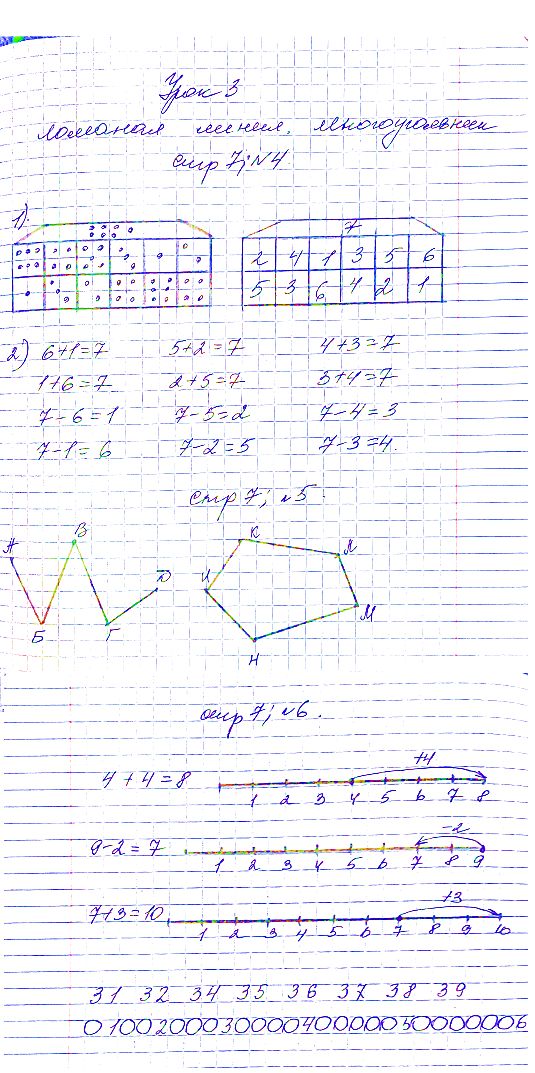 Урок 3
Ломаная линия. Многоугольник
стр 7; №4
1).
7
2 4 1 3 5 6
5 3 6 4 2 1
2) 6+1=7 5+2=7 4+3=7
1+6=7 2+5=7 3+4=7
7-6=1 7-5=2 7-4=3
7-1=6 7-2=5 7-3=4.
стр 7; №5.
А Б В Г Д
И К Л М Н
стр 7; №6.
4+4=8
+4
1 2 3 4 5 6 7 8
9-2=7
-2
1 2 3 4 5 6 7 8 9
7+3=10
+3
1 2 3 4 5 6 7 8 9 10
31 32 34 35 36 37 38 39
010020003000040000050000006